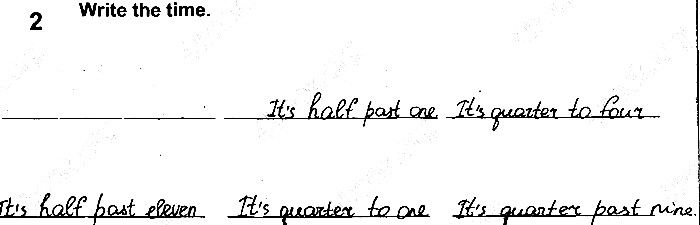 2 Write the time.
It's half past one It's quarter to four
It's half past eleven It's quarter to one It's quarter past nine.